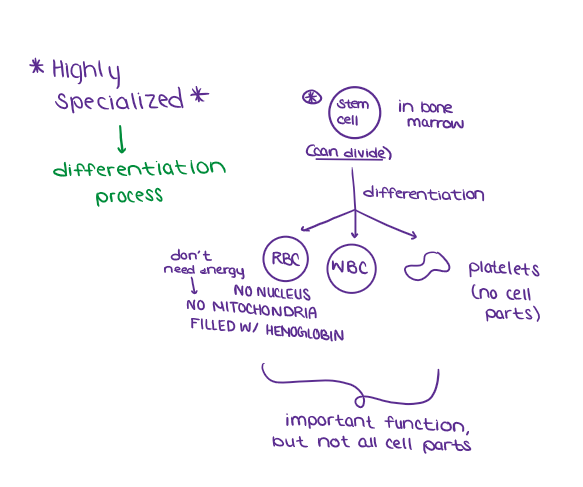 * Highly
specialized *
differentiation
process
* stem
cell
in bone
marrow
(can divide)
differentiation
don't
need energy
RBC
WBC
platelets
(no cell
parts)
NO NUCLEUS
NO MITOCHONDRIA
FILLED W/ HEMOGLOBIN
important function,
but not all cell parts